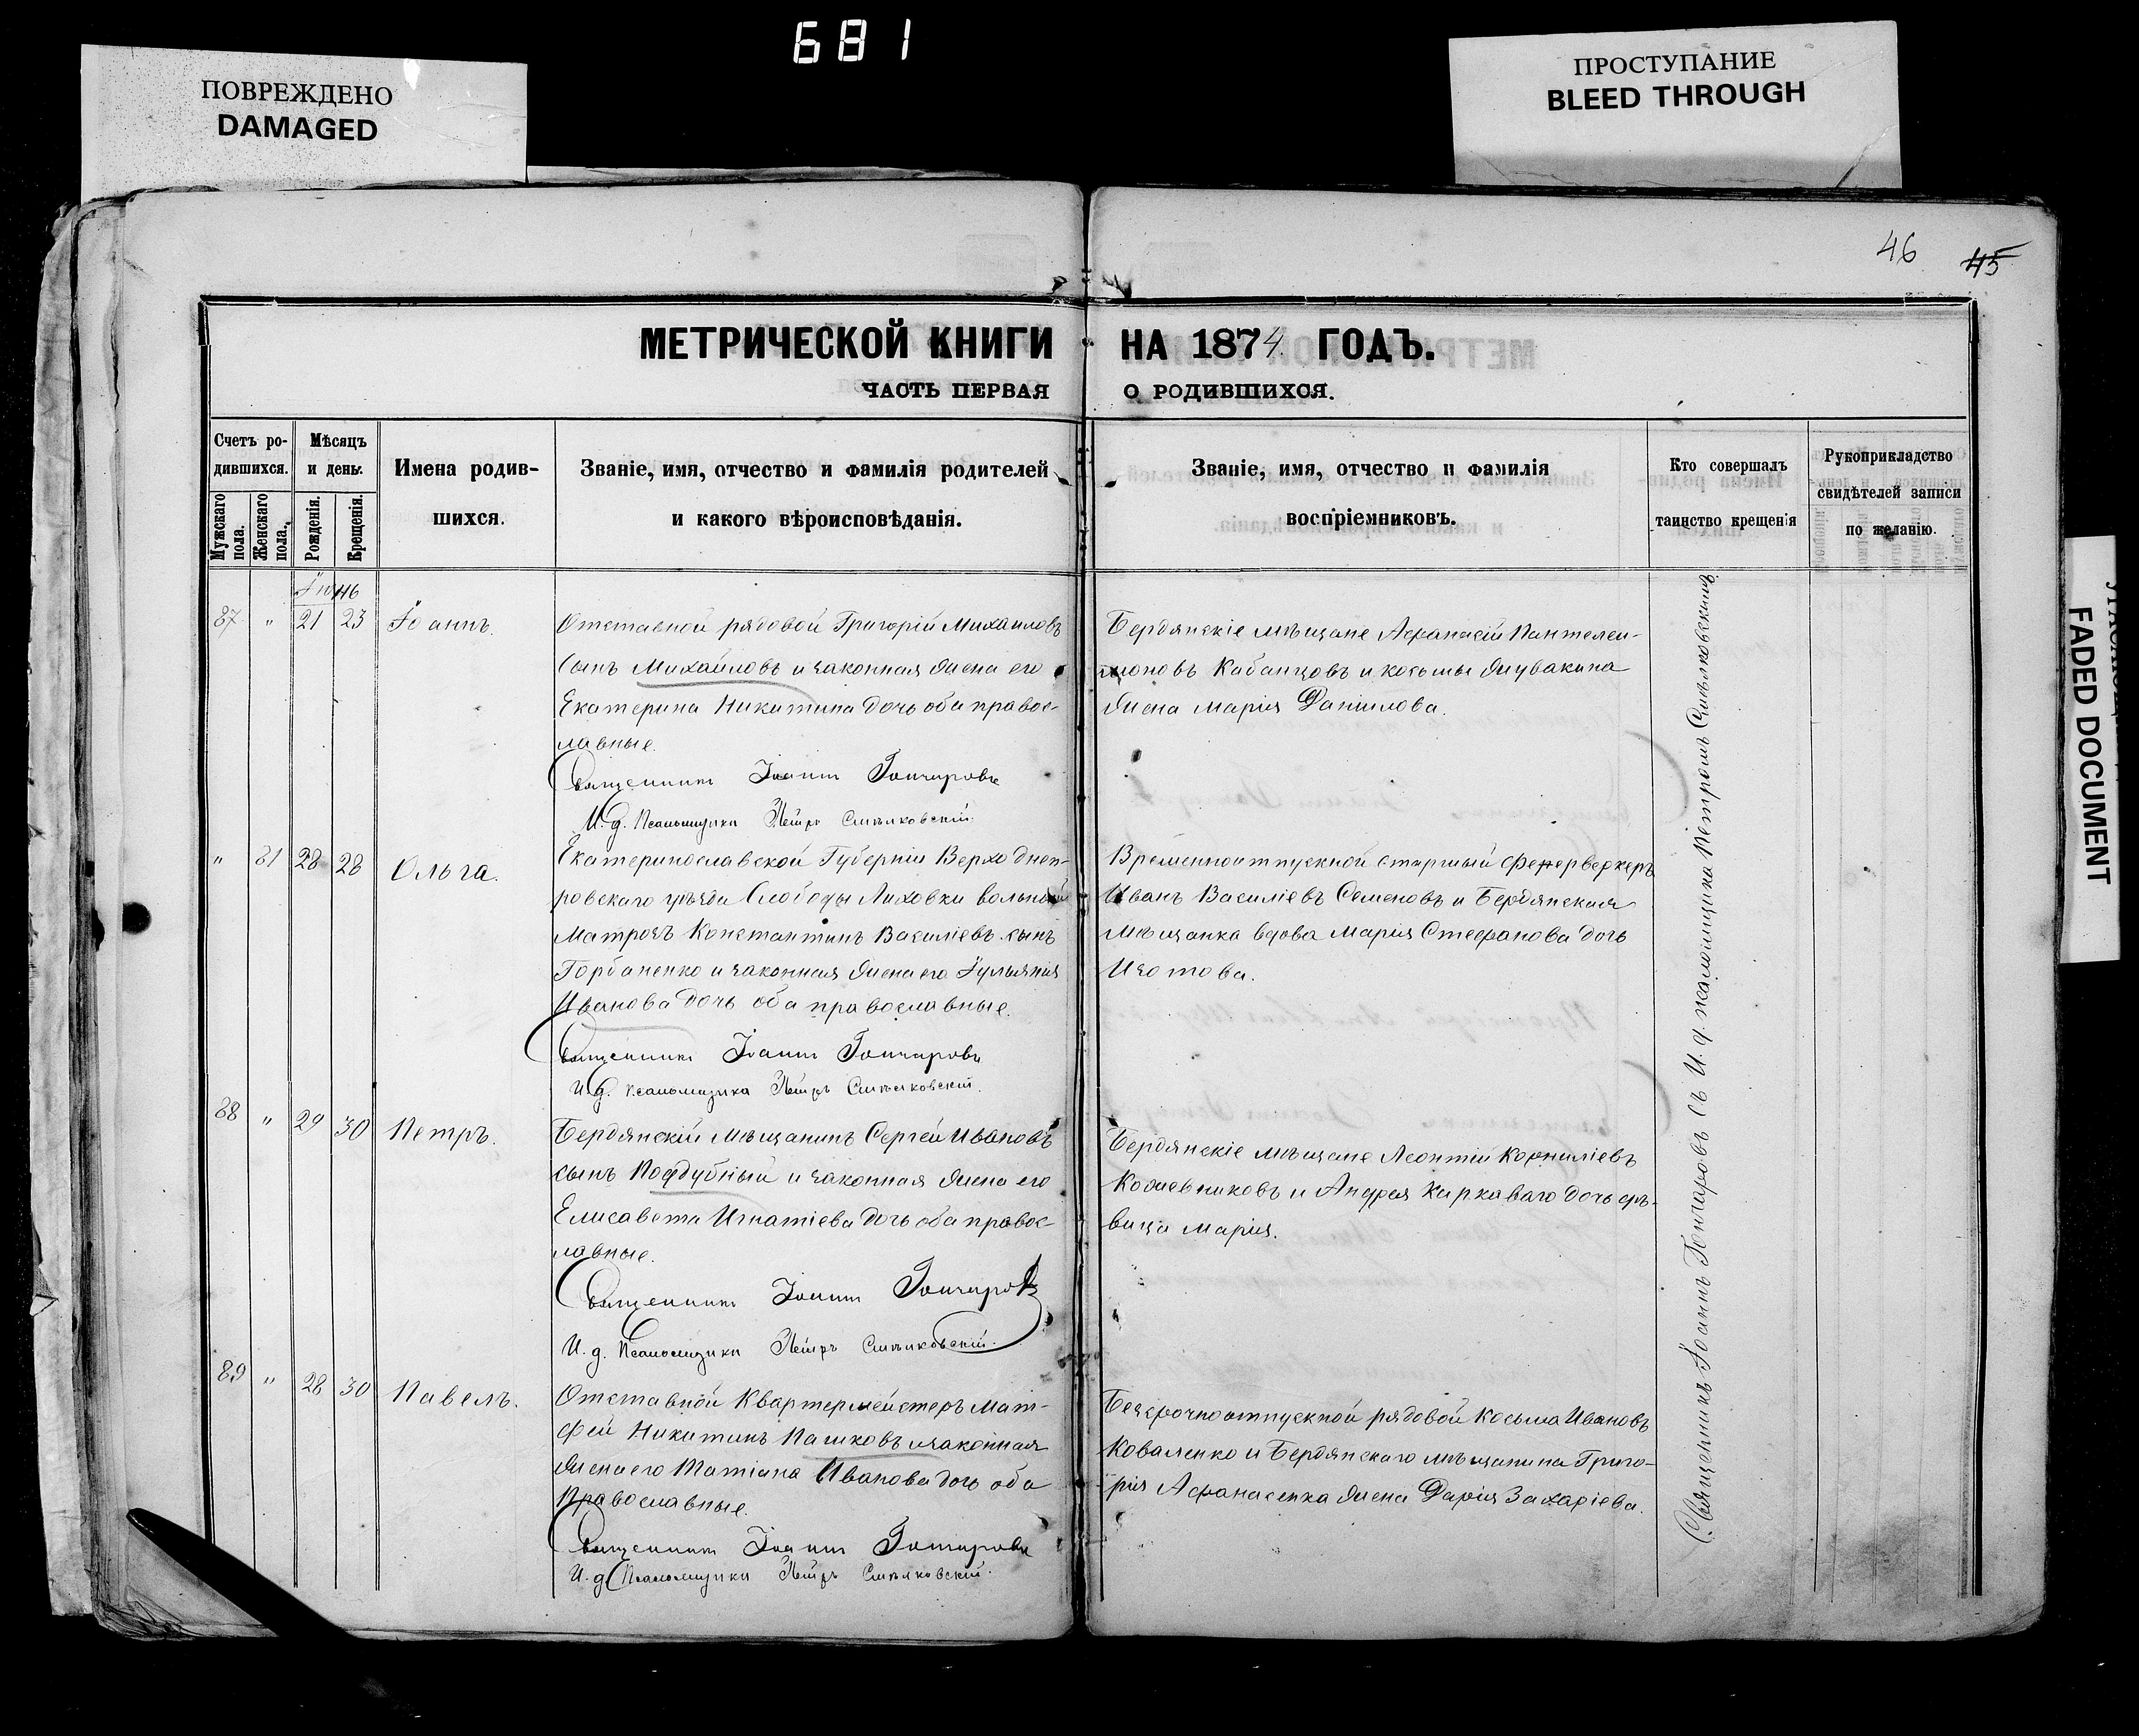 681
ПОВРЕЖДЕНО
DAMAGED
ПРОСТУПАНИЕ
BLEED THROUGH
46 45
МЕТРИЧЕСКОЙ КНИГИ НА 1874 ГОДЪ.
ЧАСТЬ ПЕРВАЯ О РОДИВШИХСЯ.
Счетъ ро-
дившихся.
Мужскаго пола.
Женскаго пола.
Мѣсяцъ
и день.
Рожденія.
Крещенія.
Имена родив-
шихся.
Званіе, имя, отчество и фамилія родителей
и какого вѣроисповѣданія.
Званіе, имя, отчество и фамилія
воспріемниковъ.
Кто совершалъ
таинство крещенія
Рукоприкладство
свидѣтелей записи
по желанію.
Іюнь
87 " 21 23 Іоаннъ.
Отставной рядовой Григорій Михаиловъ
сынъ Михайловъ и законная жена его
Екатерина Никитина дочь оба правос-
лавные.
Священникъ Іоаннъ Гончаровъ
И. д. Псаломщика Петръ Смѣлковскій.
Бердянскіе мѣщане Афанасій Пантелеи-
моновъ Кабанцовъ и косьмы Жувакина
жена Марія Даніилова.
" 81 28 28 Ольга.
Екатеринославской Губерніи Верходнеп-
ровскаго уѣзда Слободы Лиховки вольный
Матрозъ Константинъ Василіевъ сынъ
Горбаненко и законная жена его Іульянія
Иванова дочь оба православные.
Священникъ Іоаннъ Гончаровъ
И. д. псаломщика Петръ Смѣлковскій.
Временноотпускной старшый Феверверкеръ
Иванъ Василіевъ Семеновъ и Бердянская
Мѣщанка вдова Марія Стефанова дочь
Изотова.
88 " 29 30 Петръ.
Бердянскій Мѣщанинъ Сергей Ивановъ
сынъ Поддубный и законная жена его
Елисавета Игнатіева дочь оба правос-
лавные.
Священникъ Іоаннъ Гончаровъ
И. д. Псаломщика Петръ Смѣлковскій.
Бердянскіе мѣщане Леонтій Корниліевъ
Кожевниковъ и Андрея Харкаваго дочь дѣ-
вица Марія.
89 " 28 30 Павелъ.
Отставной Квартермейстеръ Мат-
фей Никитинъ Пашковъ и законная
жена его Татіана Иванова дочь оба
Православные.
Священникъ Іоаннъ Гончаровъ
И. д. Псаломщика Петръ Смѣлковскій.
Безсрочноотпускной рядовой Косьма Ивановъ
Коваленко и Бердянскаго мѣщанина Григо-
рія Афанасенка жена Дарія Захаріева.
Священникъ Іоаннъ Гончаровъ съ И. д. псаломщика Петромъ Смѣлковскимъ
FADED DOCUMENT